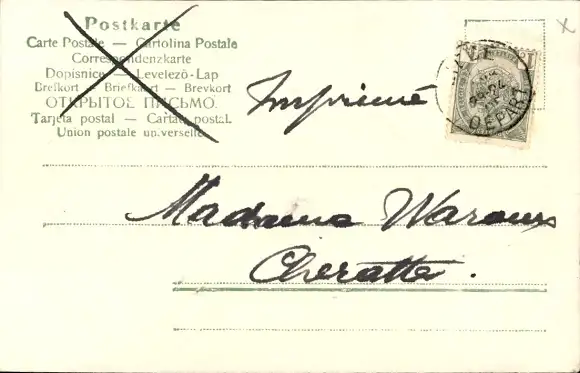 Postkarte
Carte Postale — Cartolina Postale
Correspondenzkarte
Dopisnice — Levelező-Lap
Brefkort — Briefkaart — Brevkort
ОТКРЫТОЕ ПИСЬМО.
Tarjeta postal — Cartao postal.
Union postale universelle
Imprimé
DEPART
Madame Warous
Cheratte.